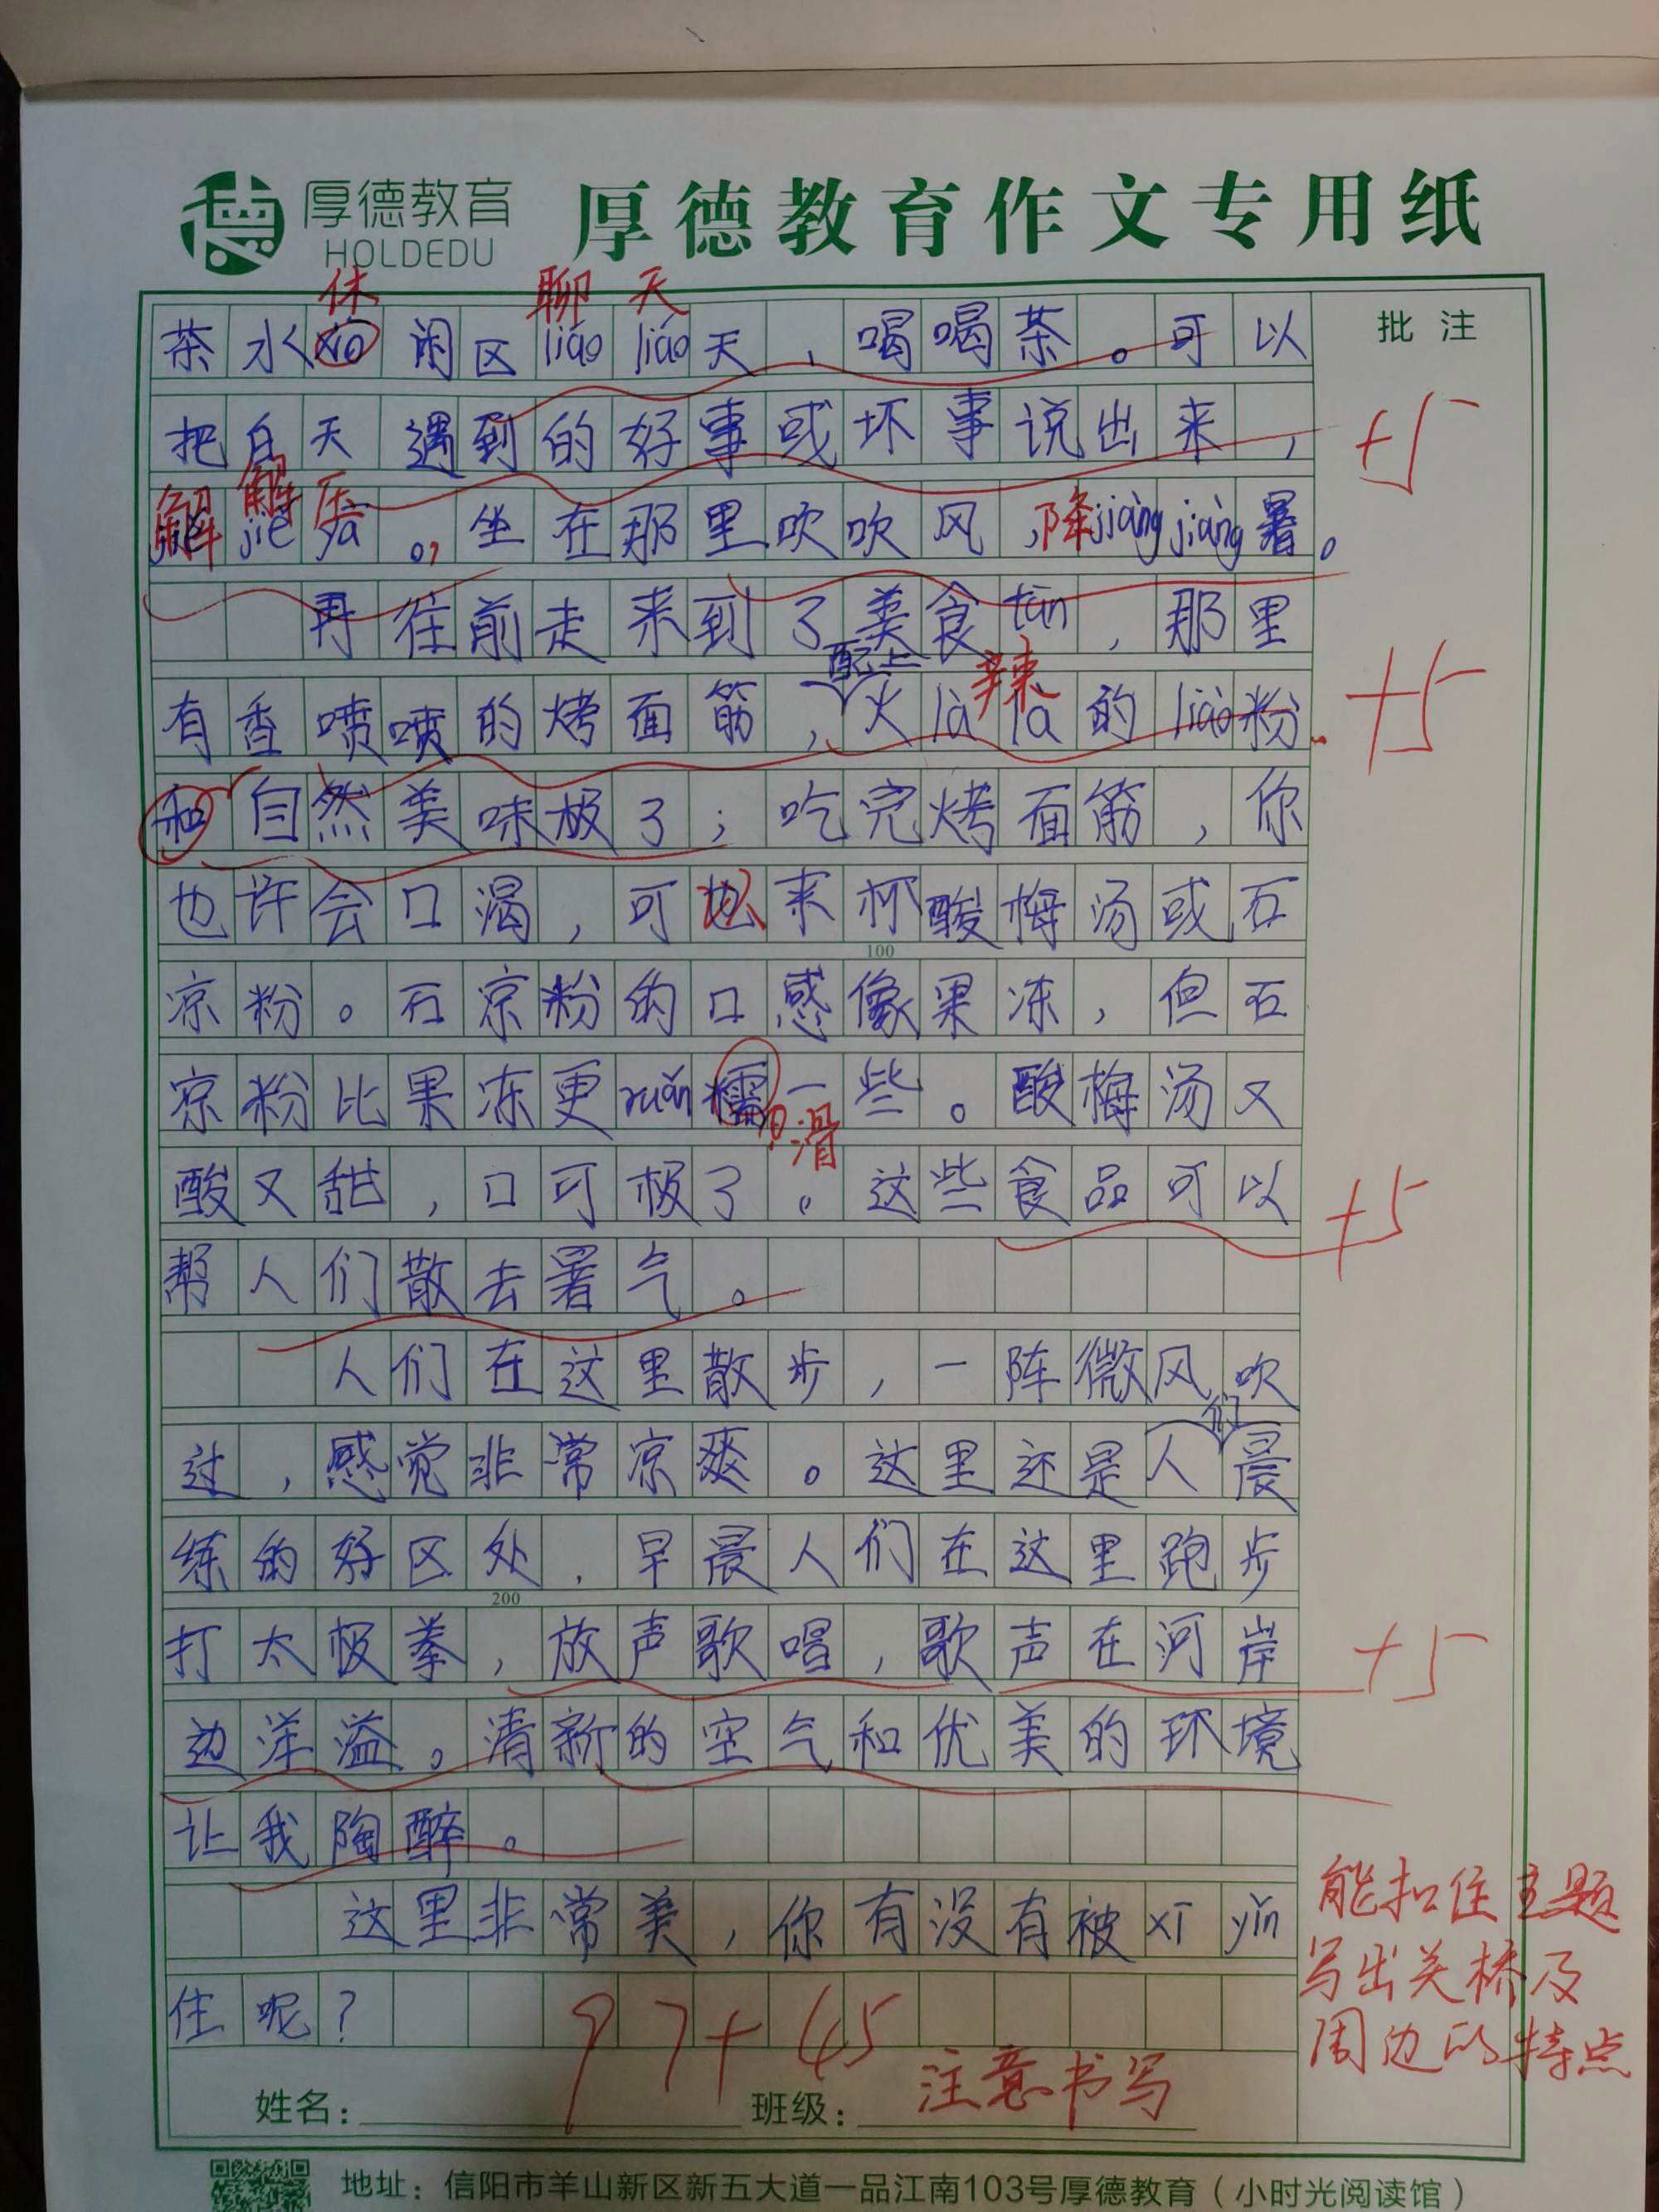 厚德教育
HOLDEDU
厚德教育作文专用纸
休 聊 天
茶水xiū闲区liáo liáo天，喝喝茶。可以
批注
把白天遇到的好事或坏事说出来，
+5
解 解 压
jiě jiě yā 。，坐在那里吹吹风，降jiàng jiàng暑。
再往前走来到了美食tān，那里
配上 辣
有香喷喷的烤面筋，火là là的liào粉.
+5
和自然美味极了；吃完烤面筋，你
也许会口渴，可也来杯酸梅汤或石
100
凉粉。石凉粉的口感像果冻，但石
凉粉比果冻更ruǎn糯一些。酸梅汤又
滑
酸又甜，口可极了。这些食品可以
+5
帮人们散去暑气。
人们在这里散步，一阵微风吹
们
过，感觉非常凉爽。这里还是人晨
练的好区处，早晨人们在这里跑步
200
打太极拳，放声歌唱，歌声在河岸
+5
边洋溢。清新的空气和优美的环境
让我陶醉。
这里非常美，你有没有被xī yǐn
住呢？
能扣住主题
写出关桥及
周边的特点
97+45
注意书写
姓名： 班级：
地址：信阳市羊山新区新五大道一品江南103号厚德教育（小时光阅读馆）